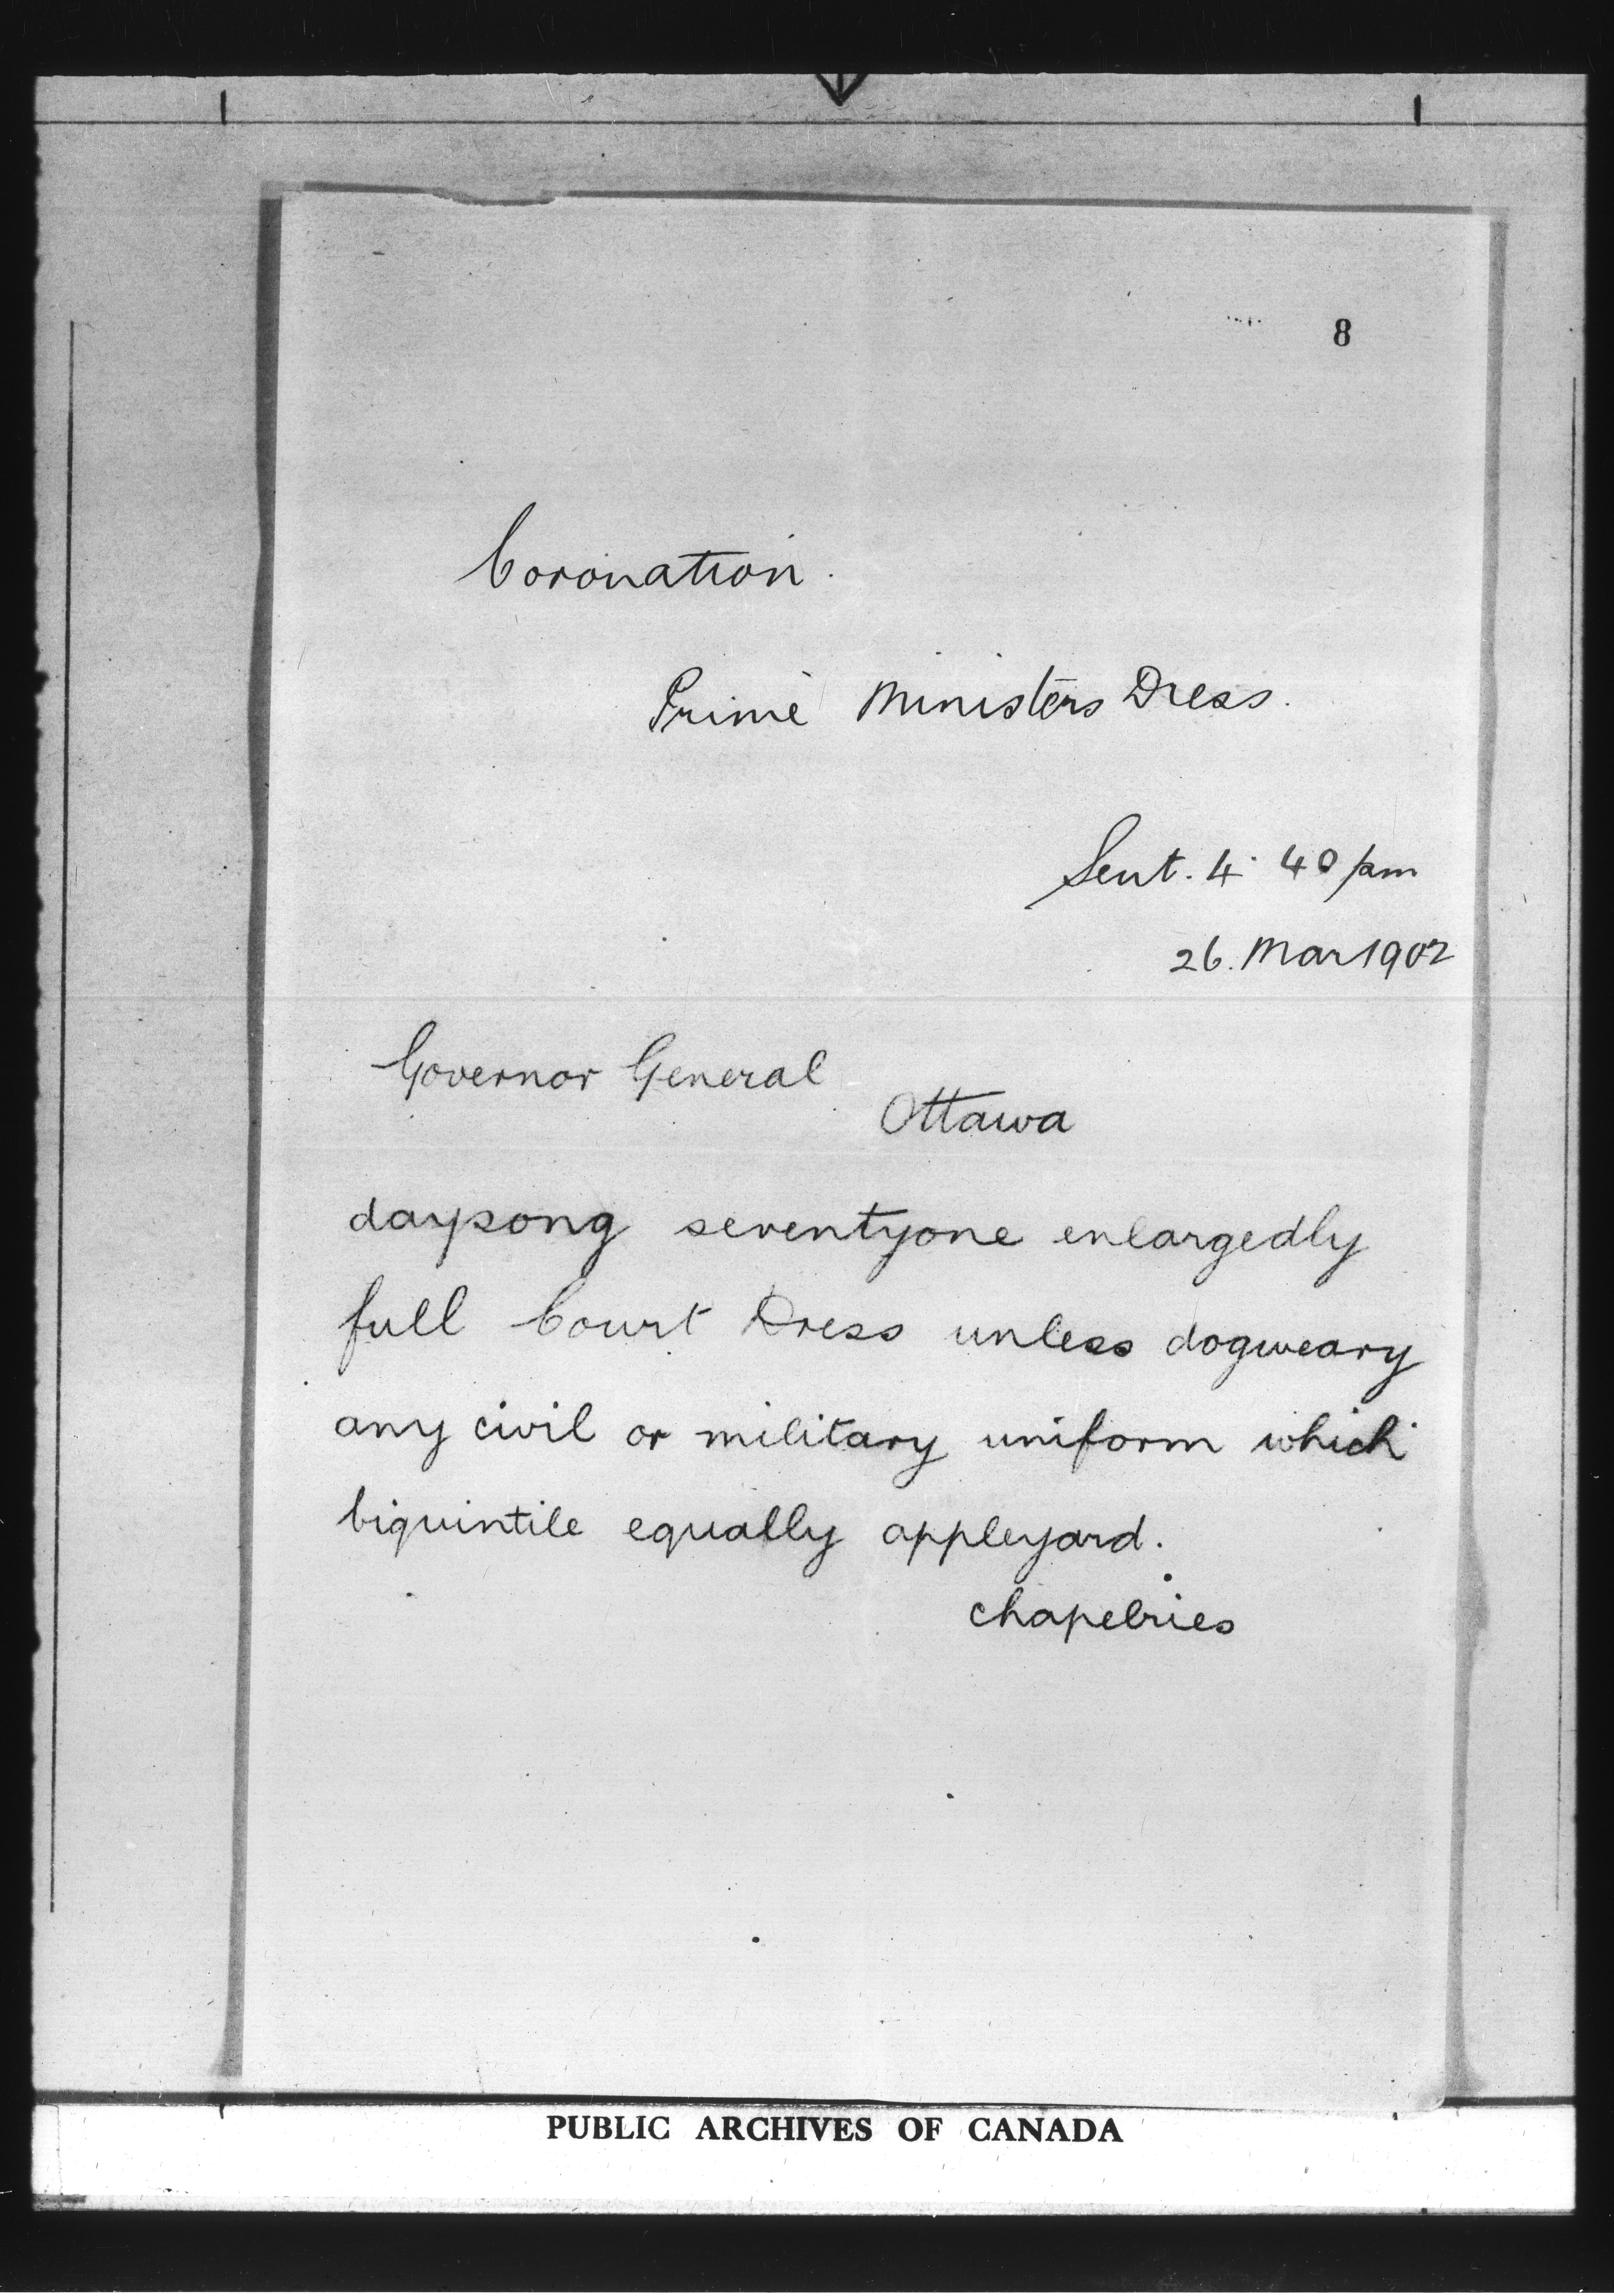 8
Coronation.
Prime Ministers Dress.
Sent. 4. 40 pm
26. Mar 1902
Governor General
Ottawa
daysong seventyone enlargedly
full Court Dress unless dogweary
any civil or military uniform which
biquintile equally appleyard.
chapelries
PUBLIC ARCHIVES OF CANADA